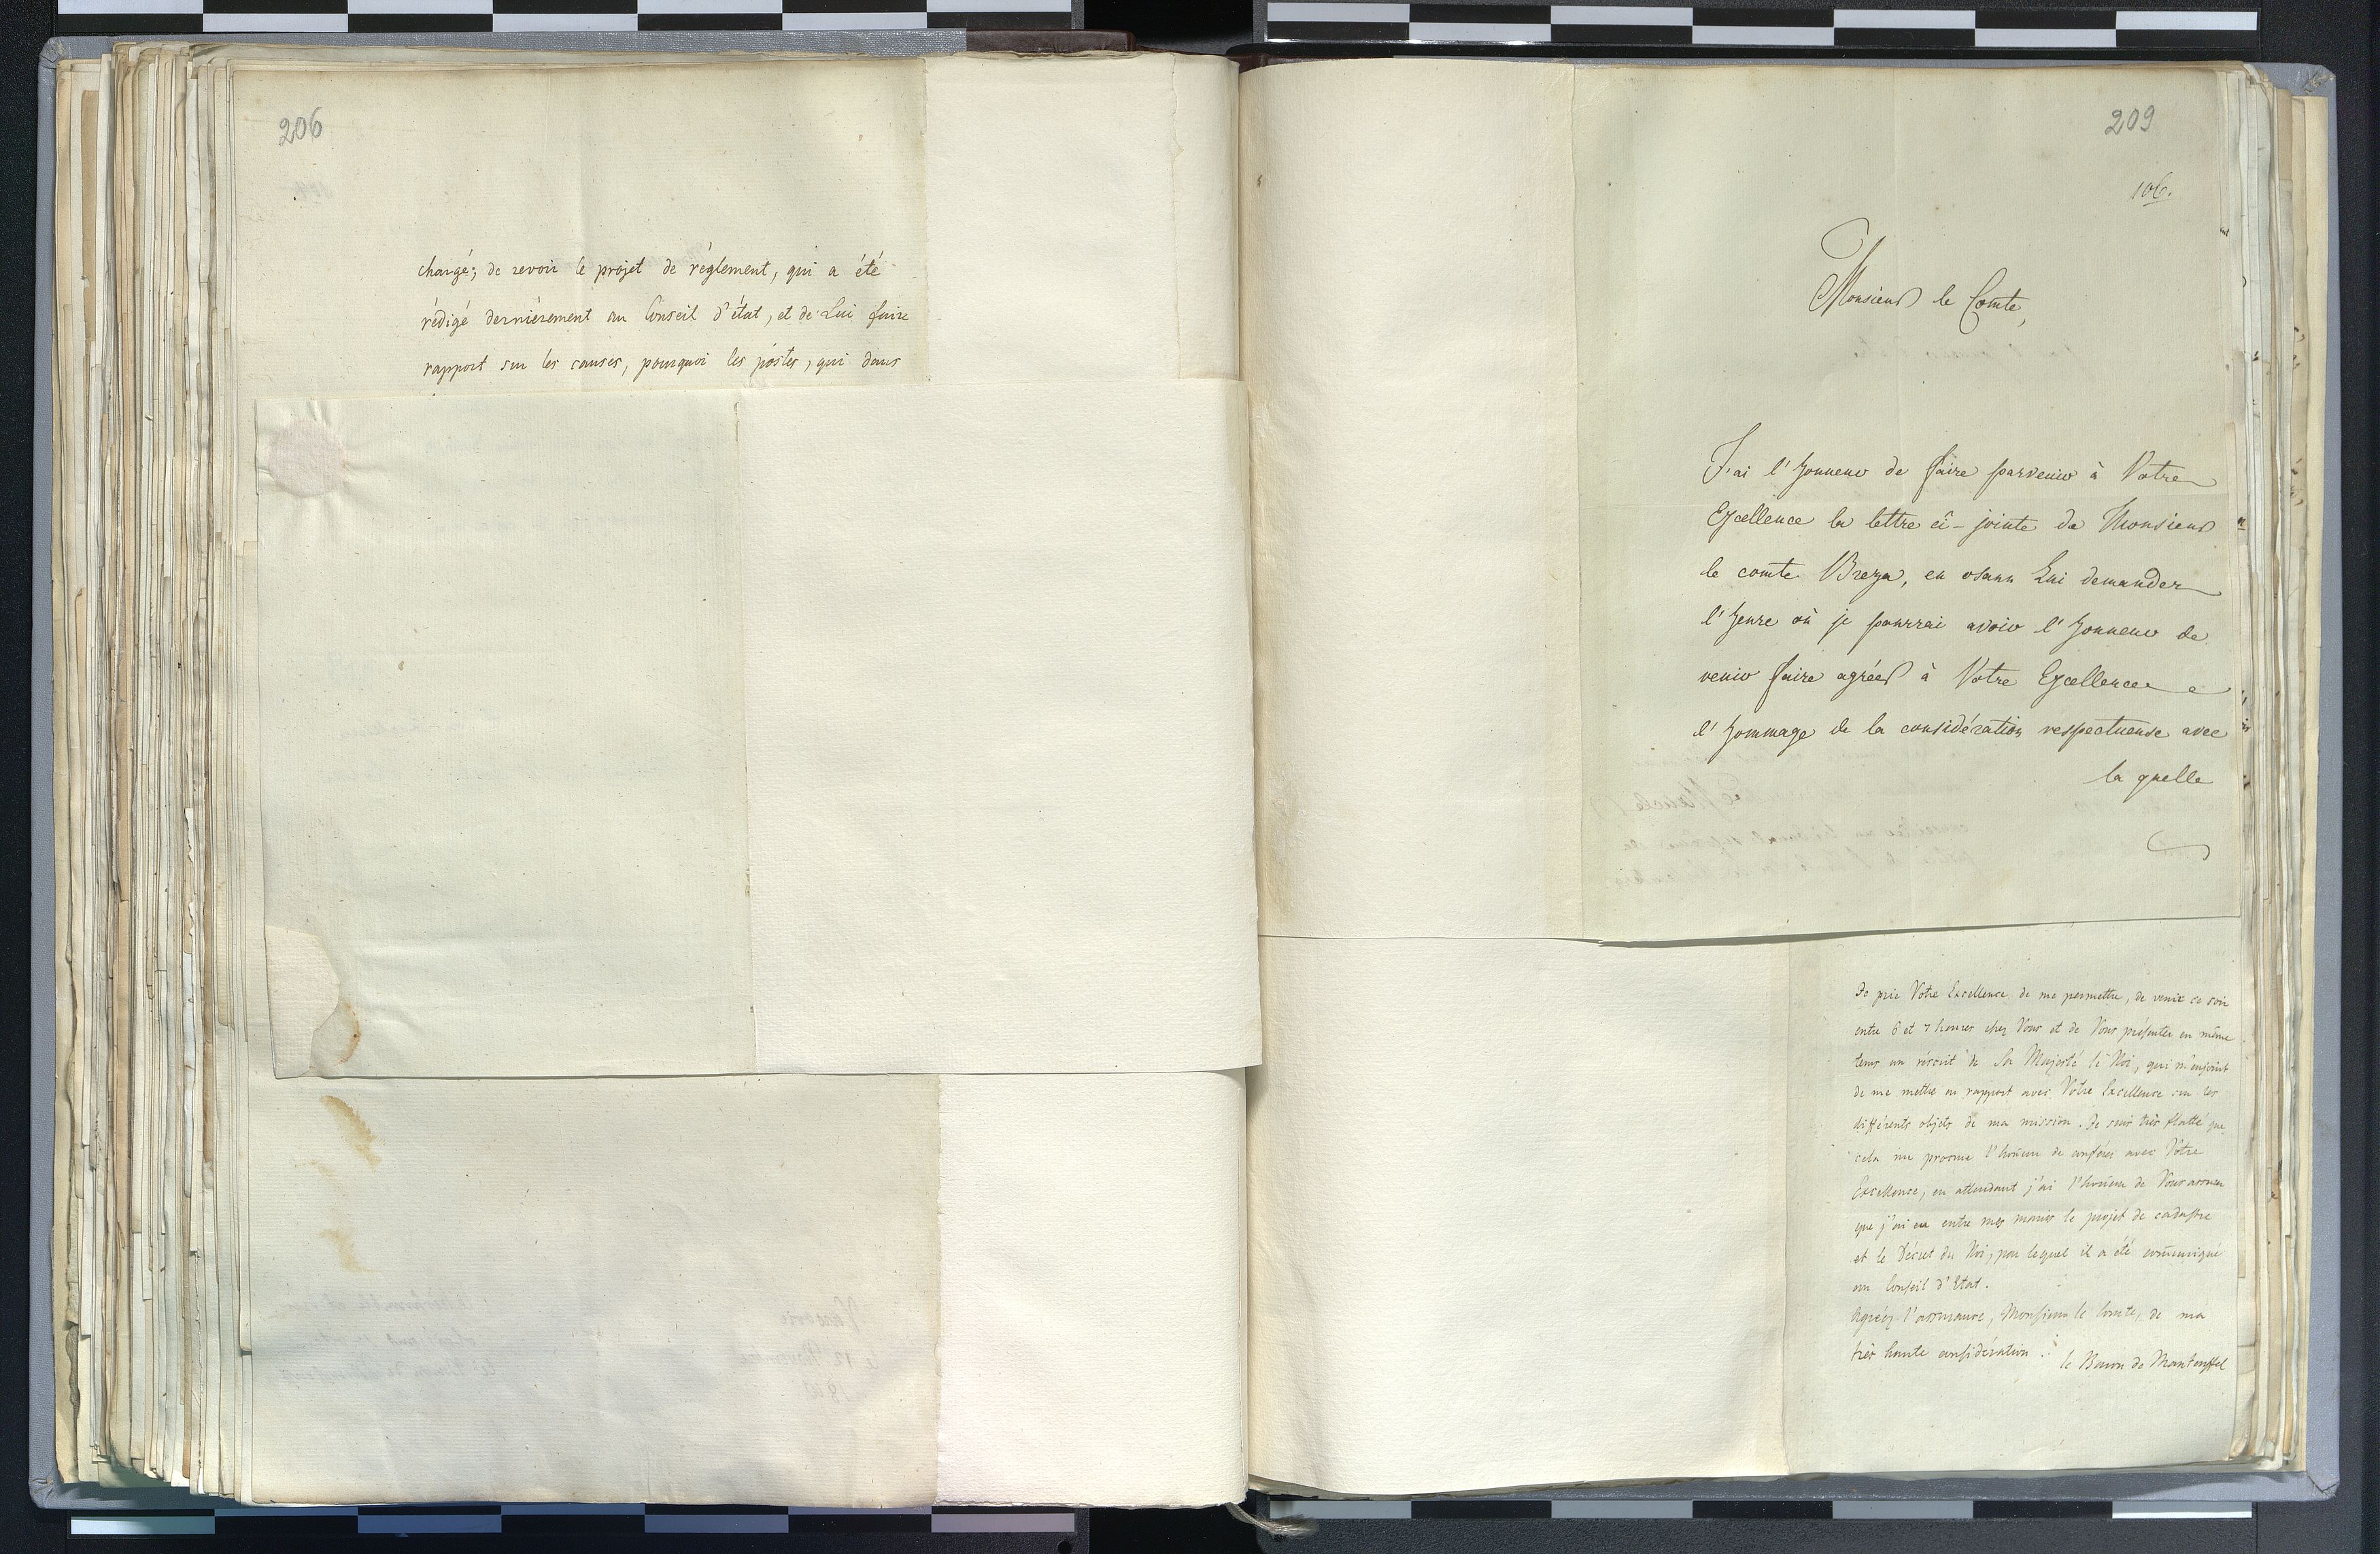 206
chargé; de revoir le projet de réglement, qui a été
rédigé dernièrement au Conseil d'état, et de Lui faire
rapport sur les causes, pourquoi les postes, qui dans
209
106.
Monsieur le Comte,
J'ai l'honneur de faire parvenir à Votre
Excellence la lettre ci-jointe de Monsieur
le comte Breza, en osann Lui demander
l'heure où je pourrai avoir l'honneur de
venir faire agréer à Votre Excellence
l'hommage de la considération respectueuse avec
la quelle
Je prie Votre Excellence de me permettre, de venir ce soir
entre 6 et 7 heures chez Vous et de Vous présenter en même
tems un rescrit de Sa Majesté le Roi, qui m'enjoint
de me mettre en rapport avec Votre Excellence sur les
différents objets de ma mission. Je suis très flatté que
cela me procure l'honneur de conférer avec Votre
Excellence, en attendant j'ai l'honneur de Vous assurer
que j'ai eu entre mes mains le projet de cadastre
et le Décret du Roi, par lequel il a été communiqué
au Conseil d'Etat.
Agréez l'assurance, Monsieur le Comte, de ma
très haute considération.
le Baron de Manteuffel